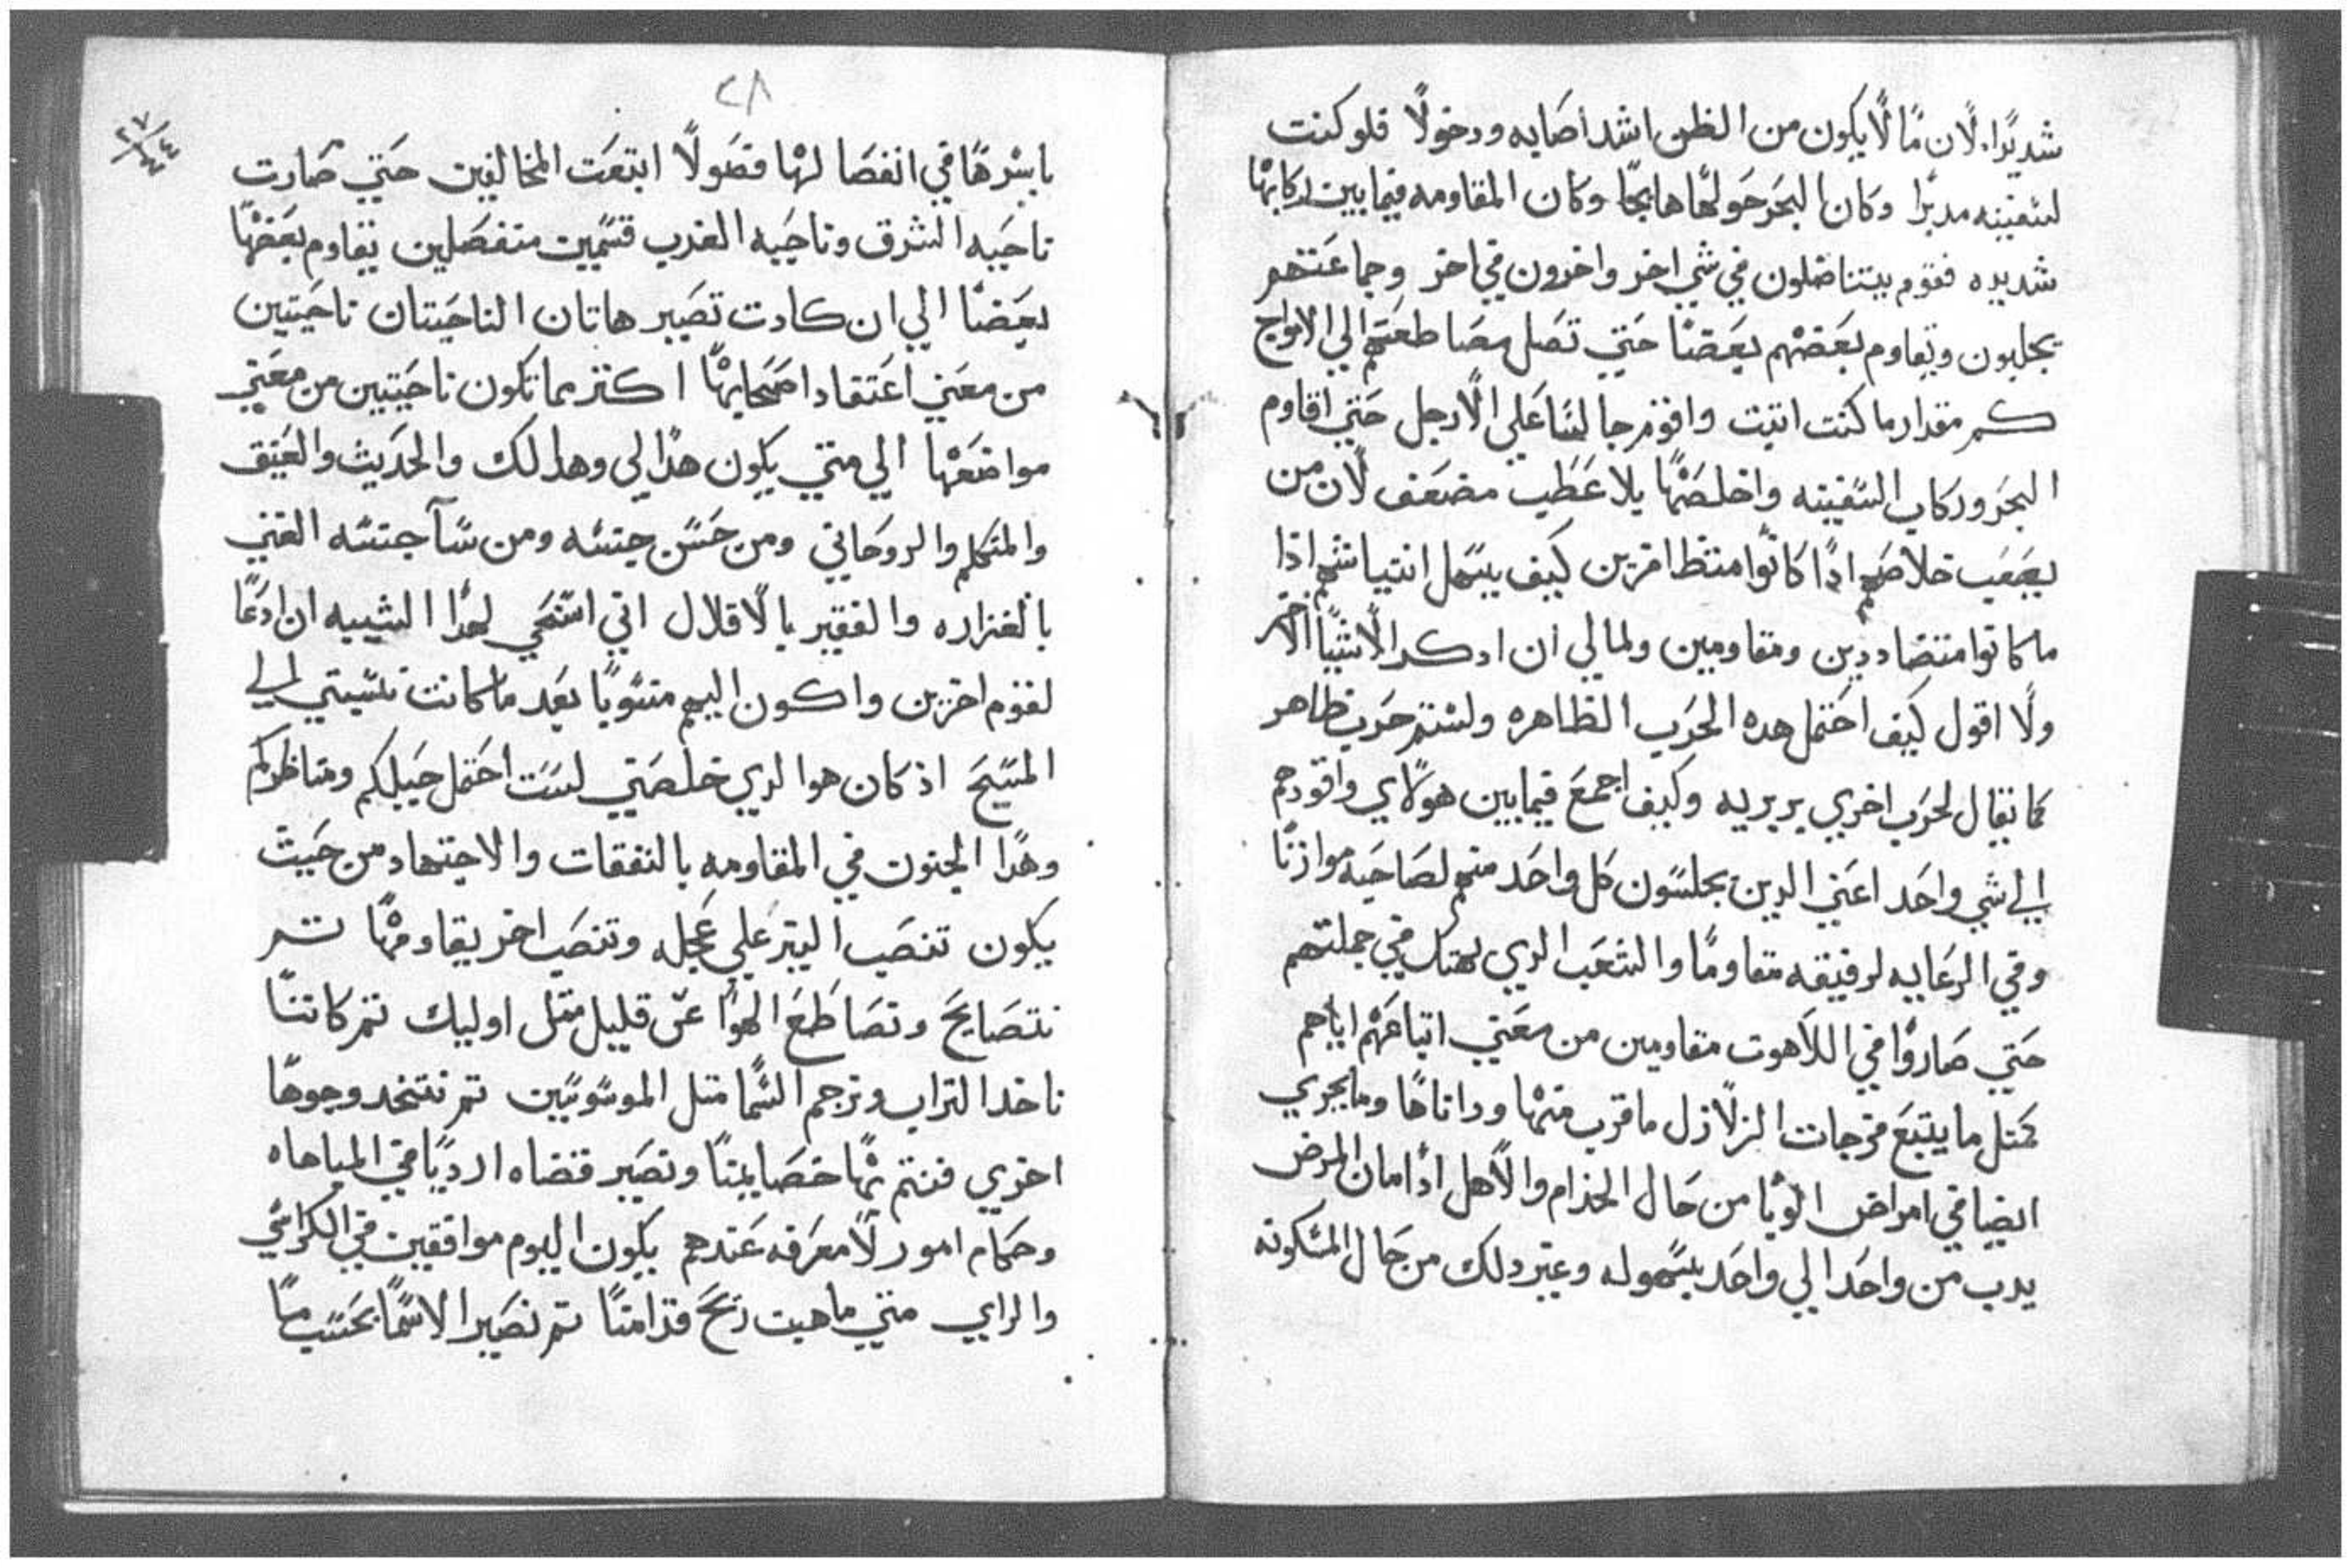 شديدًا. لان مًا لًا يكون من الظن اشد اصَابه ودخولًا فلو كنت
لسَفينه مدبرًا وكان البحَر حَولهًا هايجًا وكان المقاومه فيما بين ركابهًا
شديده فقوم يتناضلون في شي اخر واخرون في اخر وجماعَتهم
يجلبون ويقاوم بعَضهم بعَضًا حَتي تصَل مصَاطعَتهم الي الامواج
كم مقدار ما كنت اتبت واقوم جالسًا عَلي الًارجل حَتي اقاوم
البحَر وركاب السَفينه واخلصَهًا بلا عَطَب مضعَف لًان من
يصَعَب خلاصَهم ادًا كانوًا متظافرين كيف يسَهل انتياشهم اذا
ما كانوا متضاددين ومقاومين ولما لي ان ادكر الًاشيًا الاخر
ولًا اقول كيف احَتمل هده الحَرب الظاهره ولستم حَرب ظاهر
كما يقال لحَرب اخري بربريه وكيف اجمعَ فيما بين هولًاي واقودهم
الي شي واحَد اعَني الدين يجلسَون كل واحَد منهم لصَاحَبه موازنًا
وفي الرعَايه لرفيقه مقاومًا والشعَب الدي في جملتهم
حَتي صَاروًا في اللًاهوت مقاومين من معَني اتباعَهم اياهم
كمتل ما يتبعَ فرجات الزلًازل ما قرب منهًا وداناهًا وما يجري
ايضًا في امراض الوبًا من حَال الخدام والًاهل ادًا ما ان المرض
يدب من واحَد الي واحَد بسَهوله وغير دلك من حَال المسَكونه
٢٨
٢٧/٤٤
باسَرهًا في انفصَالهًا فصَولًا اتبعَت المخالفين حَتي صَارت
ناحَيه الشرق وناحَيه الغرب قسَمين منفصَلين يقاوم بعَضهًا
بعَضًا الي ان كادت تصَير هاتان الناحَيتان ناحَيتين
من معَني اعَتقاد اصَحَابهًا اكتر مما تكون ناحَيتين من معَني
مواضعَهًا الي متي يكون هدًا لي وهدا لك والحَديث والعَتيق
والمتكلم والروحَاني ومن حَسَن جنسَه ومن سَآ جنسَه الغني
بالغزاره والفقير بالًاقلال اني اسَتحَي لهدًا الشيبه ان ادعَا
لقوم اخرين واكون اليهم منسَوبًا بعَد ما كانت نسَبتي الي
المسَيحَ اذ كان هو الدي خلصَني لسَت احَتمل حَيلكم ومناظركم
وهدًا الجنون في المقاومه بالنفقات والاجتهاد من حَيت
يكون تنصَب اليتر عَلي عَجله وتنصَب اخر يقاومهًا تم
نتصَايحَ وتصَاطَعَ الهوًا عَن قليل متل اوليك تم كاننًا
ناخد التراب ونرجم السَمًا متل الموسَوسَين تم نتخد وجوهًا
اخري فنتم بهًا خصَايمنًا ونصَير قضاه ارديًا في المباهاه
وحَكام امور لًا معَرفه عَندهم يكون اليوم موافقين في الكراسَي
والراي متي ما هبت ريحَ قدامنًا تم نصَير الاسَمًا بحَسَب مًا